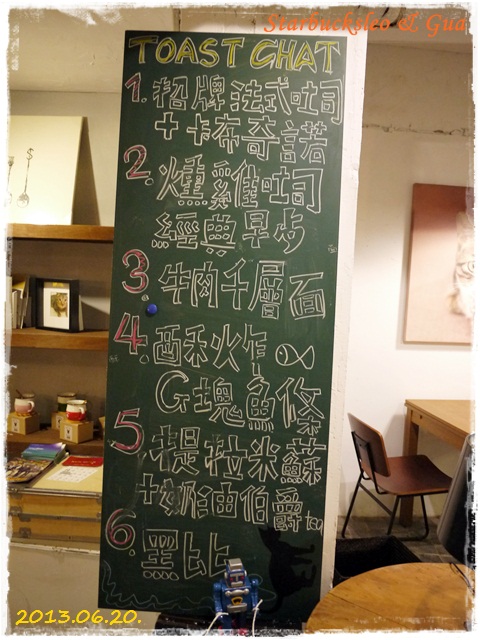 Starbucksleo & Gua
TOAST CHAT
1. 招牌法式吐司
+卡布奇諾
2. 燻雞吐司
經典早步
3 牛肉千層面
4. 酥炸
G塊魚條
5. 提拉米蘇
+奶油伯爵tea
6. 墨比
2013.06.20.